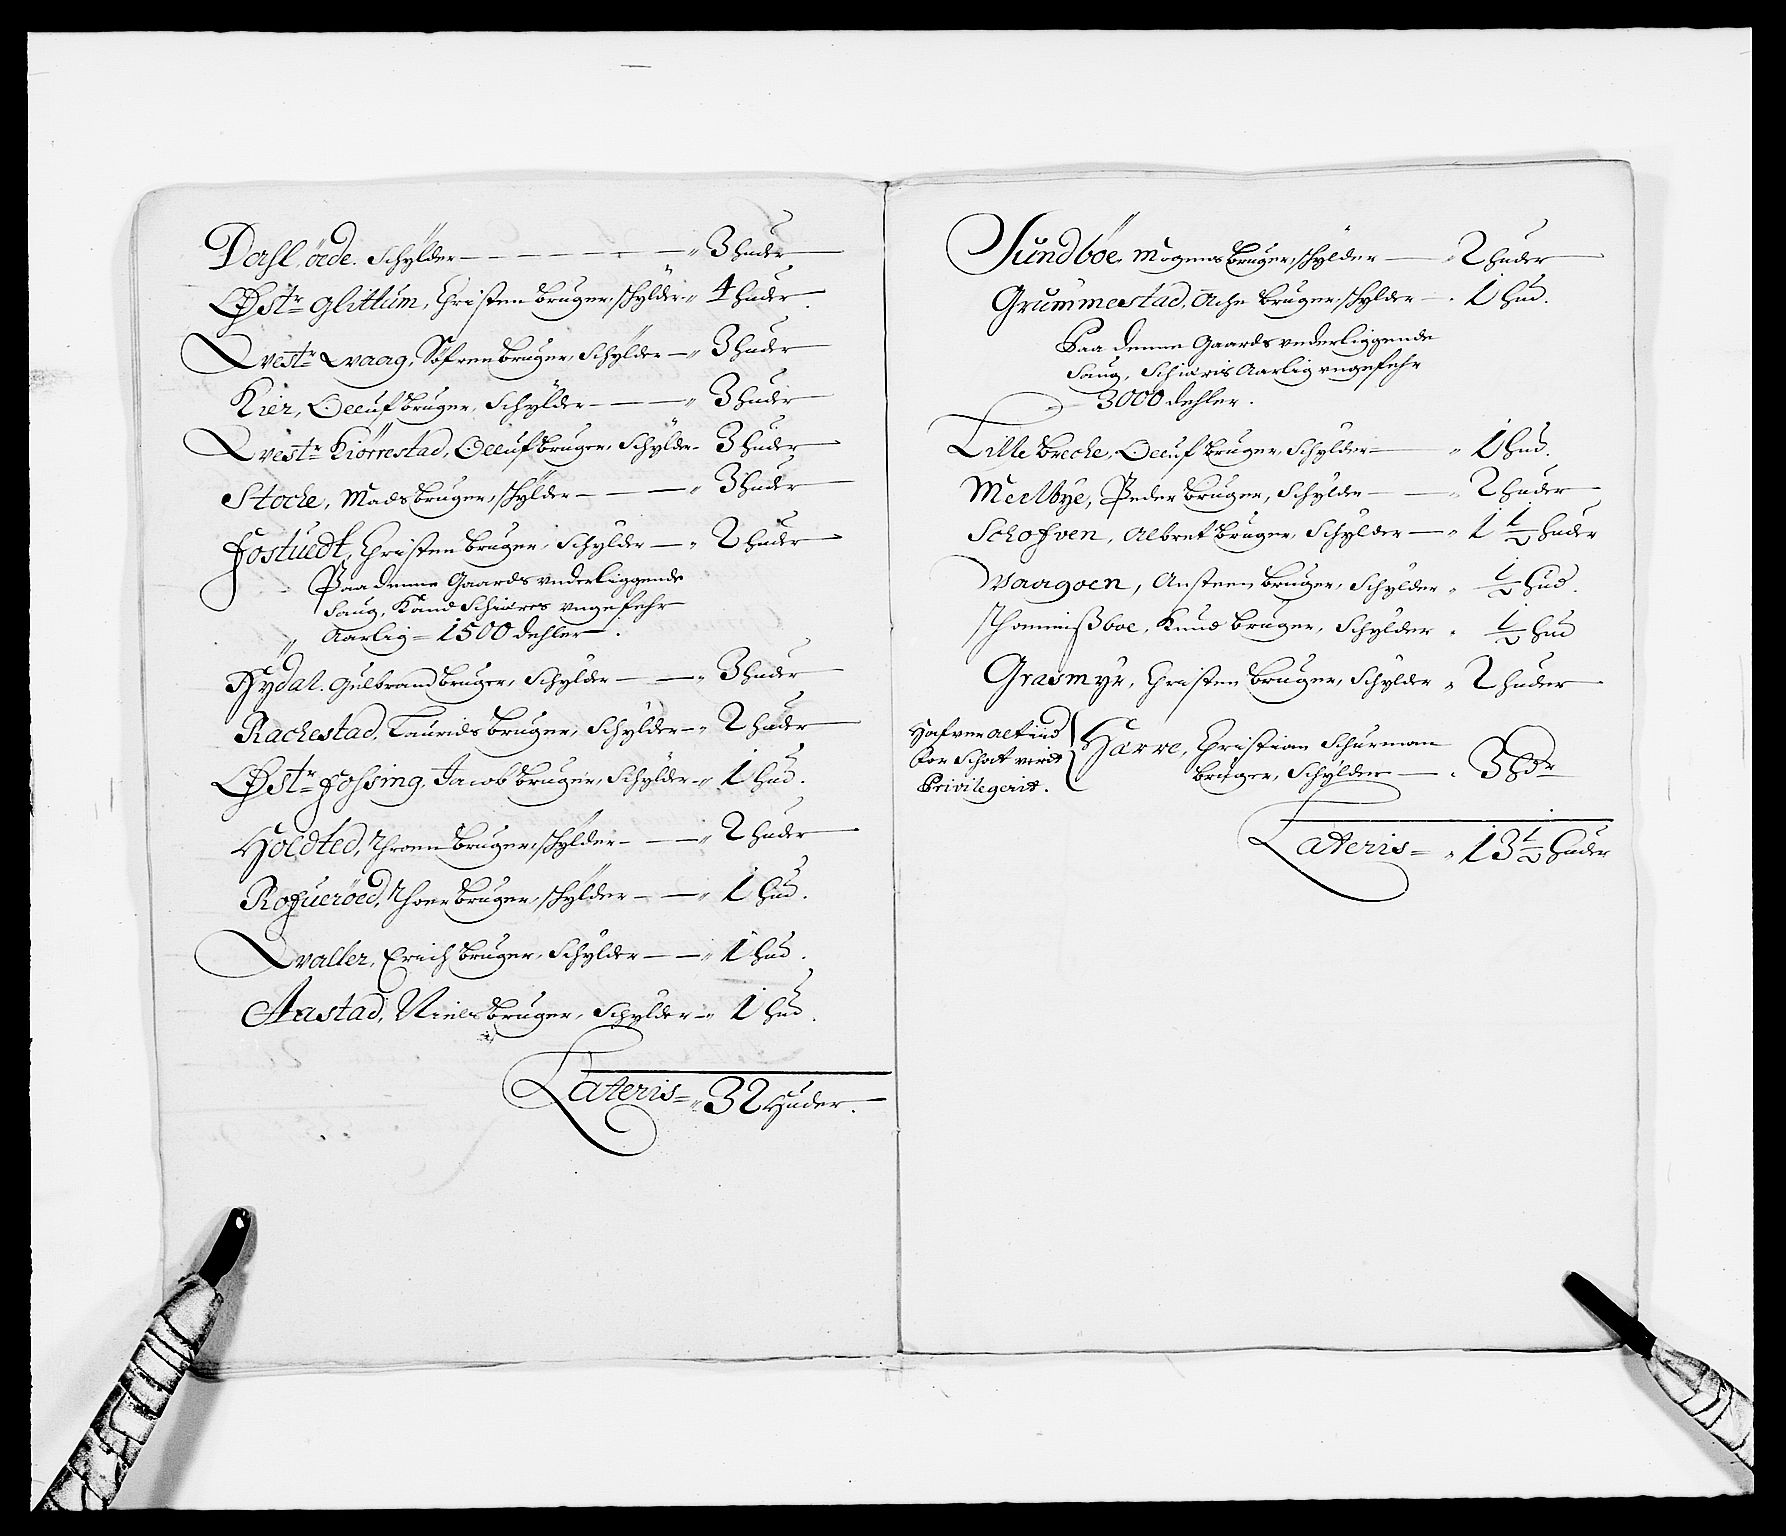 Dahl, öde. Schÿlder - - - - - - " 3 huder
Østr glittum, Christen bruger, schÿlder " 4 huder
Westr Waag, Söfren bruger, Schÿlder — " 3 huder
Kier, Oeluf bruger, Schÿlder - — — " 3 huder
Westr Kiörrestad, Oeluf bruger, Schÿlder - 3 huder
Stoche, Mads bruger, schÿlder - — — " 3 huder
Fostuedt, Christen bruger, Schÿlder — " 2 huder
Paa denne Gaards underliggende
Saug, Kand Schiæres ungefehr
" Aarlig = 1500 dehler.
Rÿdal. Gulbrand bruger, Schÿlder - — — " 3 huder
Rachestad, Laurids bruger, Schÿlder — " 2 huder
Østr Fossing, Jacob bruger, Schÿlder — " 1 hud.
Holdted, Throen bruger, schÿlder - — — " 2 huder
Rofueröed, Thoer bruger, schÿlder - — — " 1 hud.
Waller, Erich bruger, Schÿlder — — " 1 hud.
Aastad, Niels bruger, Schÿlder — " 1 hud.
Lateris = " 32 Huder.
Sundböe, Mogens bruger, schÿlder — " 2 huder
Grummestad, Ache bruger, schÿlder — . 1 hud.
Paa denne Gaards underliggende
Saug, Schiæris Aarlig ungefehr
3000 dehler.
Lille Breche, Oeluf bruger, Schÿlder — " 1 hud.
Mellbÿe, Peder bruger, Schÿlder — — " 2 huder
Schofven, Albret bruger, Schÿlder — " 1 1/2 huder
Waagoen, Ansteen bruger, Schÿlder " 1/2 hud.
Thommisßboe, Knud bruger, Schÿlder " 1/2 hud
Grasmÿr, Christen bruger, Schÿlder " 2 huder
Hafver altiid
for Schat verit
Privilegerit.
Harre, Christian Schurman
bruger, Schÿlder — . 3 hdr
Lateris = " 13 1/2 huder